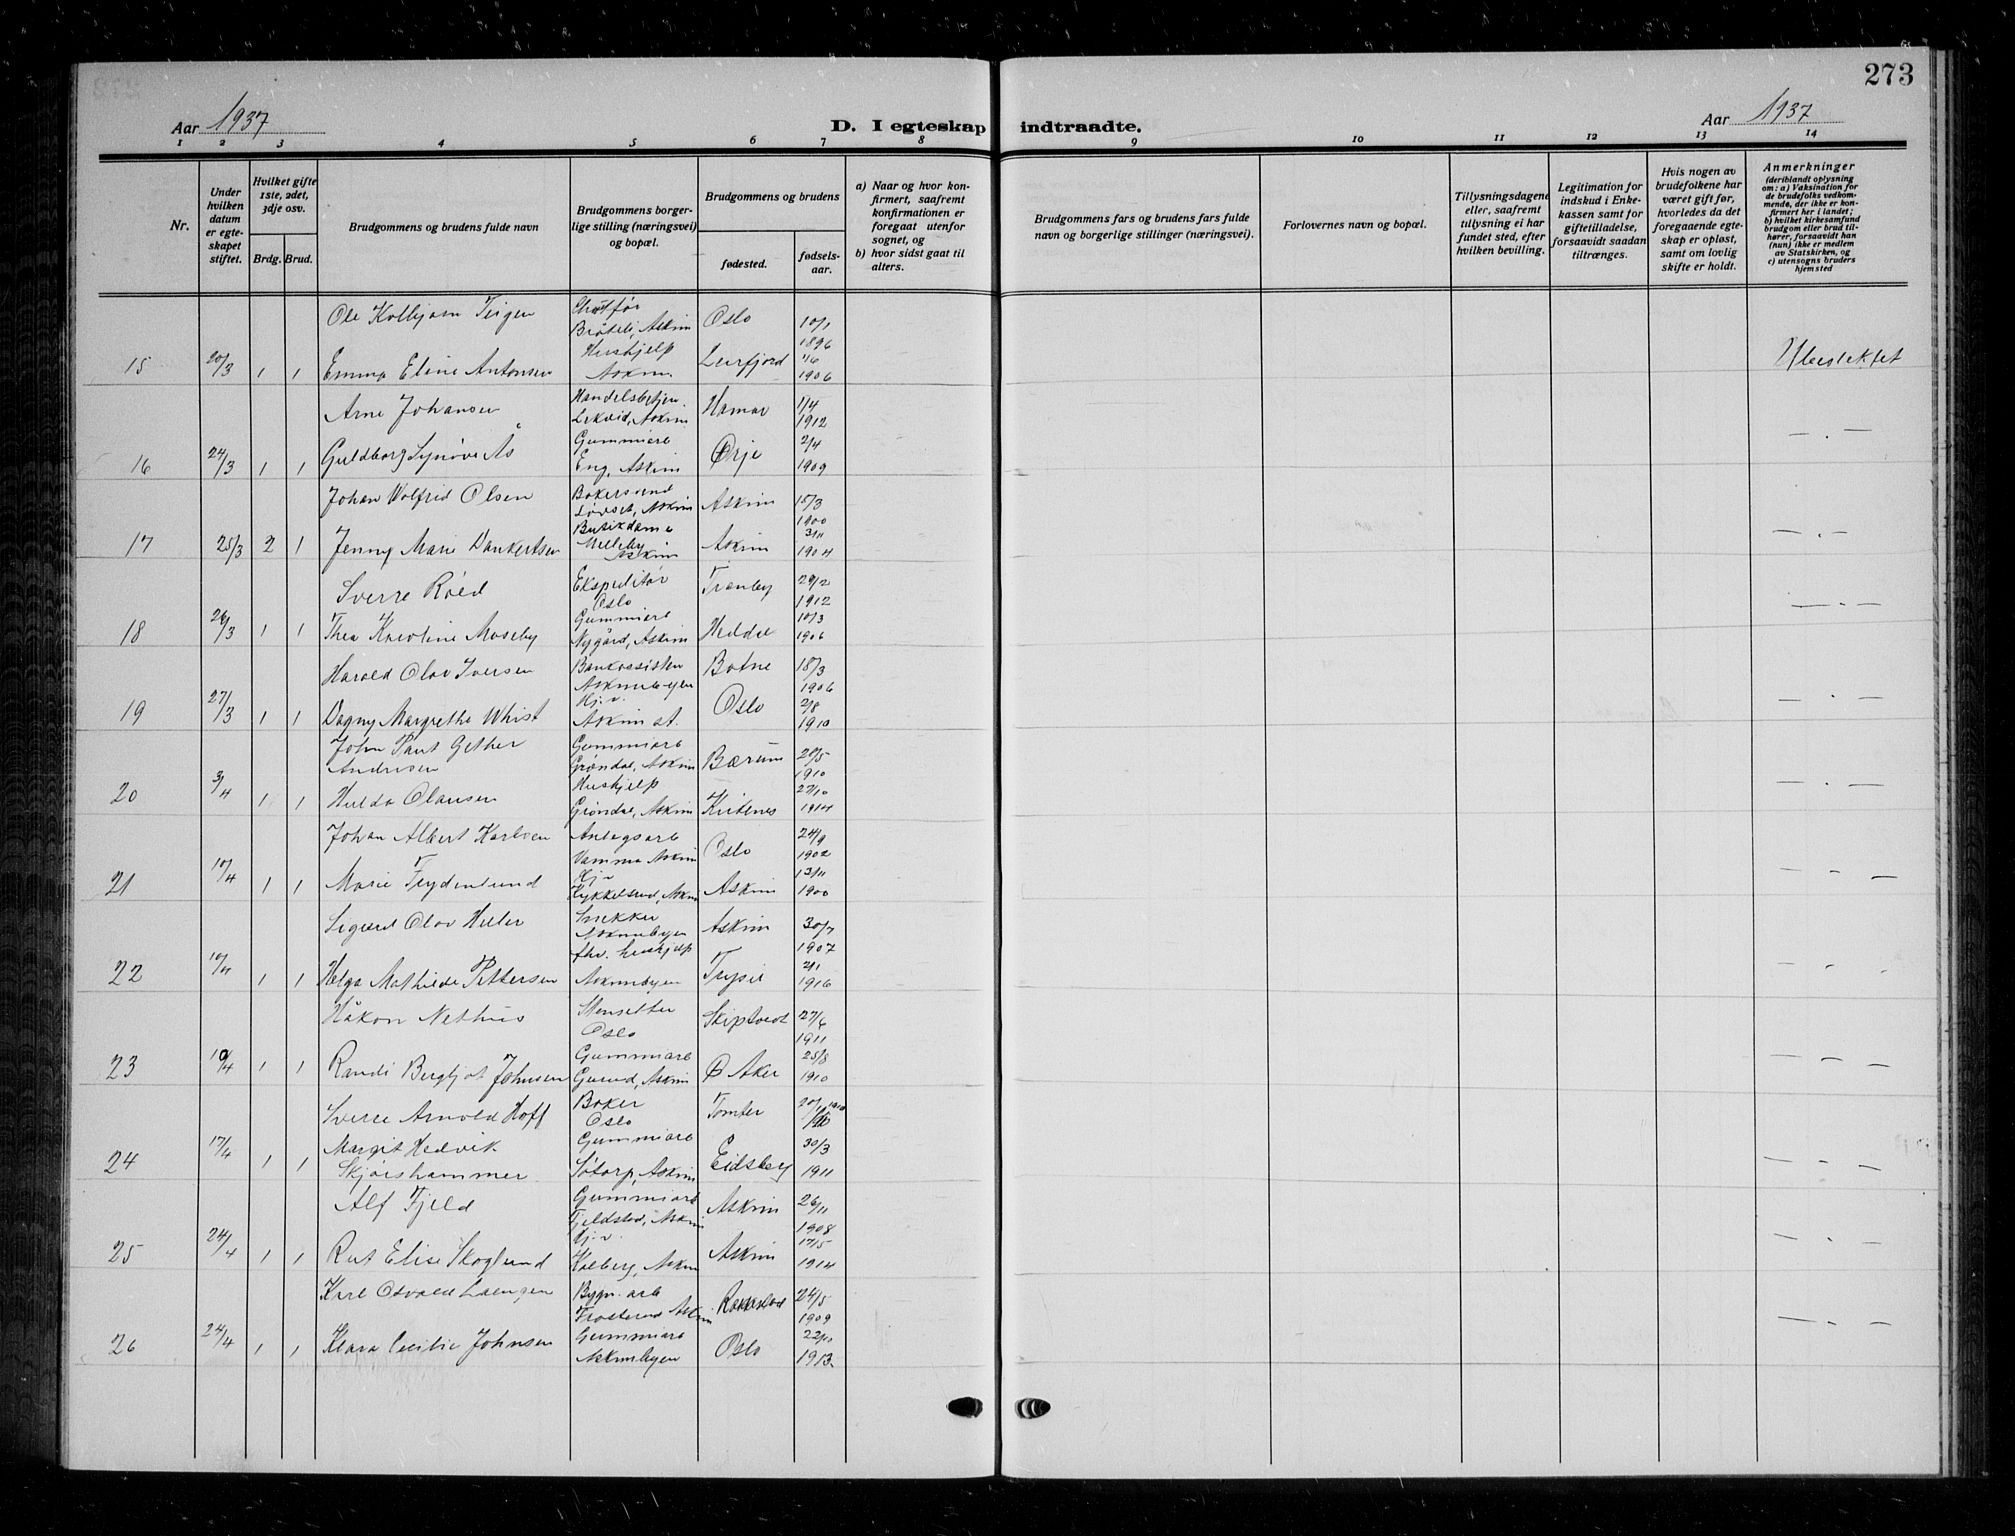 273
Aar 1937
D. I egteskap indtraadte.
Aar 1937
1 2 3 4 5 6 7 8 9 10 11 12 13 14
Nr.
Under hvilken datum er egteskapet stiftet.
Hvilket gifte 1ste, 2det, 3dje osv.
Brdg. Brud.
Brudgommens og brudens fulde navn
Brudgommens borgerlige stilling (næringsvei) og bopæl.
Brudgommens og brudens
fødested.
fødselsaar.
a) Naar og hvor konfirmert, saafremt konfirmationen er foregaat utenfor sognet, og
b) hvor sidst gaat til alters.
Brudgommens fars og brudens fars fulde navn og borgerlige stillinger (næringsvei).
Forlovernes navn og bopæl.
Tillysningsdagene eller, saafremt tillysning ei har fundet sted, efter hvilken bevilling.
Legitimation for indskud i Enkekassen samt for giftetilladelse, forsaavidt saadan tiltrænges.
Hvis nogen av brudefolkene har været gift før, hvorledes da det foregaaende egteskap er opløst, samt om lovlig skifte er holdt.
Anmerkninger (deriblandt oplysning om: a) Vaksination for de brudefolks vedkommende, der ikke er konfirmert her i landet; b) hvilket kirkesamfund brudgom eller brud tilhører, forsaavidt han (hun) ikke er medlem av Statskirken, og c) utensogns bruders hjemsted
Ole Kolbjørn Teigen Chauffør Brøteli, Askim Oslo 10/1 1896
15 20/3 1 1 Emma Eline Antonsen Hushjelp Askim Leirfjord 1906 Ubeslektet
Arne Johansen Handelsbetjen. Askim Hamar 1/4 1912
16 24/3 1 1 Guldborg Synøve Ås Gummiarb Eng, Askim Ørje 2/4 1909 — . —
Johan Wolfrid Olsen Løvset, Askim Askim 15/3 1900
17 25/3 2 1 Jenny Marie Dankertsen Butikdame Askim Askim 3/11 1904 — . —
Sverre Røed Ekspeditør Oslo Tranby 29/2 1912
18 26/3 1 1 Thea Karoline Moseby Gummiarb Nygård, Askim 10/3 1906 — . —
Harald Olav Iversen Bankassisten Askimbyen Botne 18/3 1906
19 27/3 1 1 Dagny Margrethe Whist Hj.v. Askim st. Oslo 2/8 1910 — . —
John Paul Gether Andresen Gummiarb Grøndal, Askim Bærum 20/5 1910
20 3/4 1 1 Hulda Olausen Hushjelp Grøndal, Askim 27/10 1914 — . —
Johan Albert Karlsen Anlegsarb Vamma Askim Oslo 24/9 1902
21 10/4 1 1 Marie Frydenlund Hj.v Kykkelsrud, Askim Askim 13/11 1900 — — —
Sigurd Olav Snekker Askimbyen Askim 30/7 1907
22 10/4 1 1 Helga Mathilde Pettersen fhv. hushjelp Askimbyen Trysil 2/1 1916 — . —
Håkon Nethus Oslo Skiptvedt 27/6 1911
23 10/4 1 1 Randi Bergljot Johnsen Gummiarb Askim Ø Aker 25/8 1910 — — —
Sverre Arnold Hoff Baker Oslo Tomter 1910
24 17/4 1 1 Margit Hedvik Skjørshammer Gummiarb Søtorp, Askim Eidsberg 30/3 1911 — — —
Alf Fjeld Gummiarb Fjeldstad, Askim Askim 26/11 1908
25 24/4 1 1 Rut Elise Skoglund Hj.v. Kolberg, Askim Askim 17/5 1914 — . —
Karl Osvald Bygn. arb Askim Rakkestad 24/5 1909
26 24/4 1 1 Klara Cecilie Johnsen Gummiarb Askimbyen Oslo 1913 — . —